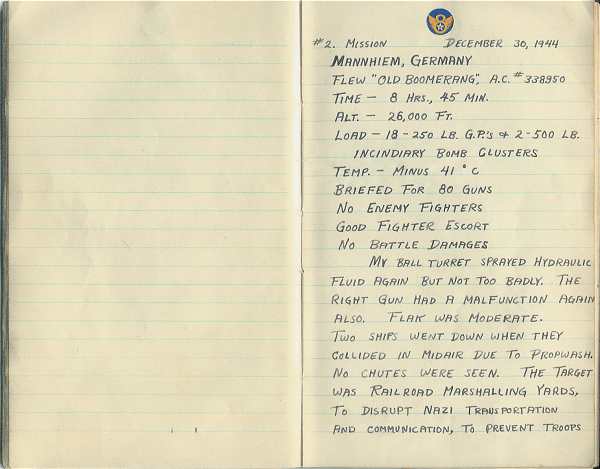 #2. Mission December 30, 1944
Mannhiem, Germany
Flew "Old Boomerang", A.C. #338950
Time - 8 Hrs., 45 Min.
Alt. - 26,000 Ft.
Load - 18 - 250 lb. G.P.'s & 2 - 500 lb.
Incindiary Bomb Clusters
Temp. - Minus 41° C
Briefed For 80 Guns
No Enemy Fighters
Good Fighter Escort
No Battle Damages
My ball turret sprayed hydraulic
fluid again but not too badly. The
right gun had a malfunction again
also. Flak was moderate.
Two ships went down when they
collided in midair due to propwash.
No chutes were seen. The target
was Railroad Marshalling Yards,
to disrupt Nazi transportation
and communication, to prevent troops